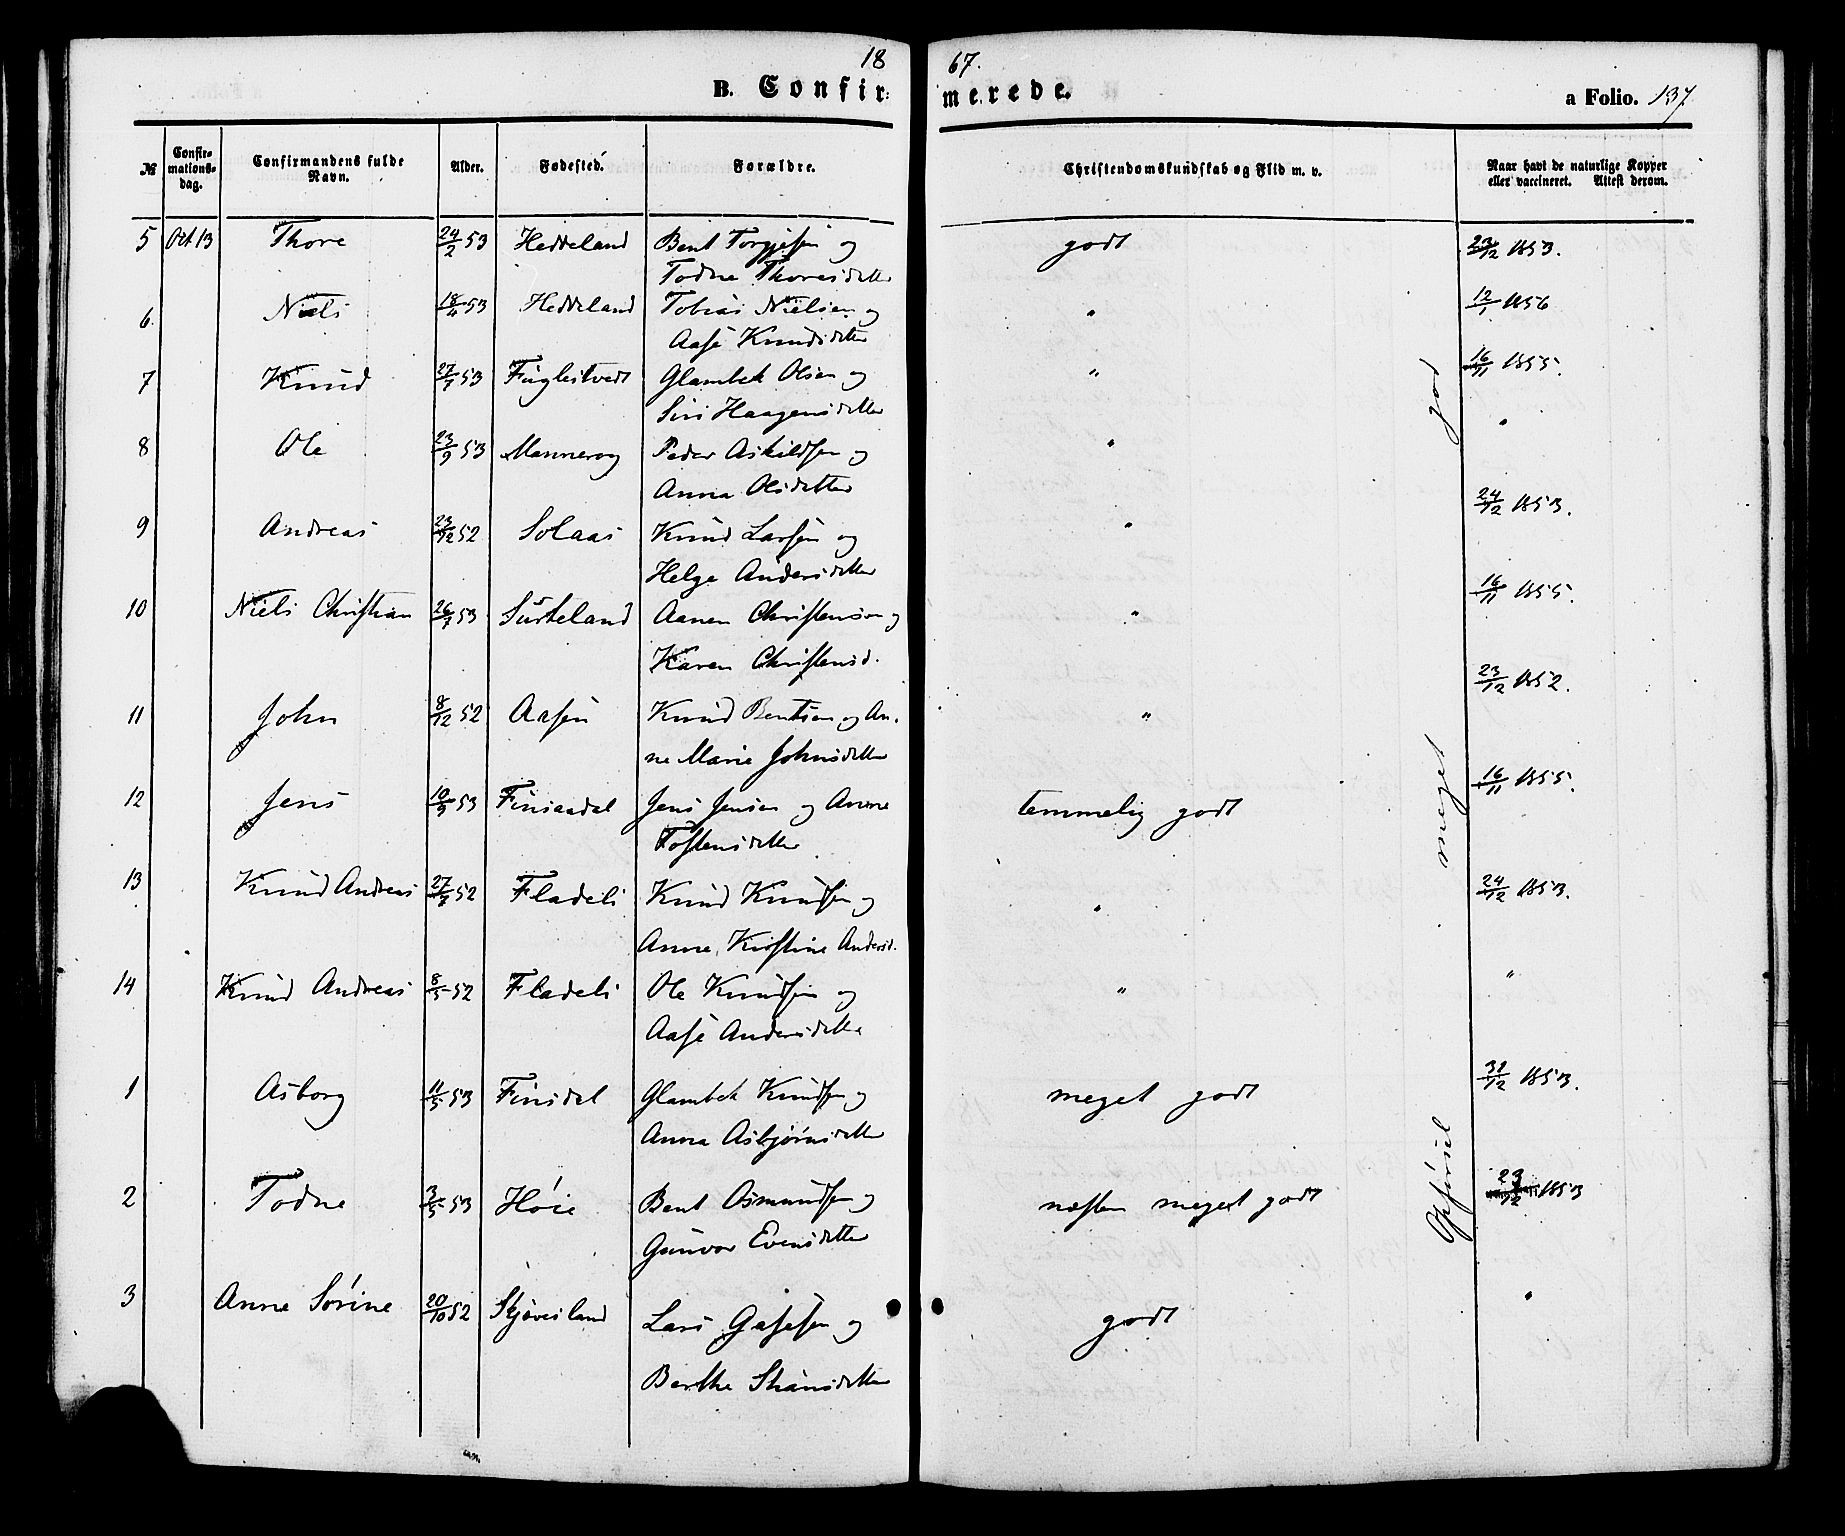 18 67.
B. Confirmerede. a Folio. 137
№ Confirmationsdag. Confirmandens fulde Navn. Alder. Fødested. Forældre. Christendomskundskab og Flid m. v. Naar havt de naturlige Kopper eller vaccineret. Attest derom.
5 Oct. 13 Thore 24/2 53 Heddeland Bent Torgjesen og godt 23/12 1853.
Todne Thoresdatter
6. Niels 18/4 53 Heddeland Tobias Nielsen og " 12/1 1856
Aase Knudsdatter
7 Knud 27/7 53 Fuglestvedt Glambek Olsen og " 16/11 1855.
Siri Haagensdatter
8 Ole 23/9 53 Mannerog Peder Askildsen og " "
Anna Olsdatter
9 Andreas 23/12 52 Solaas Knud Larsen og " 24/12 1853.
Helge Andersdatter
10 Niels Christian 26/7 53 Surteland Aanen Christensen og " 16/11 1855.
Karen Christensd.
11 John 8/12 52 Aasen Knud Bentsen og An- " 23/12 1852.
ne Marie Johnsdatter
12 Jens 10/9 53 Finsaadal Jens Jensen og Anne temmelig godt 16/11 1855.
Tostensdatter
13 Knud Andreas 27/7 52 Fladeli Knud Knudsen og " 24/12 1853.
Anne Kirstine Andersd.
14 Knud Andreas 8/5 52 Fladeli Ole Knudsen og " "
Aase Andersdatter
1 Asborg 11/5 53 Finsdal Glambek Knudsen og meget godt 31/12 1853.
Anna Asbjørnsdatter
2 Todne 3/5 53 Høie Bent Osmundsen og næsten meget godt 23/12 1853
Gunvor Evensdatter
3 Anne Sørine 20/10 52 Skjøvesland Lars Gasesen og godt "
Berthe Stiansdatter
Opførsel meget god